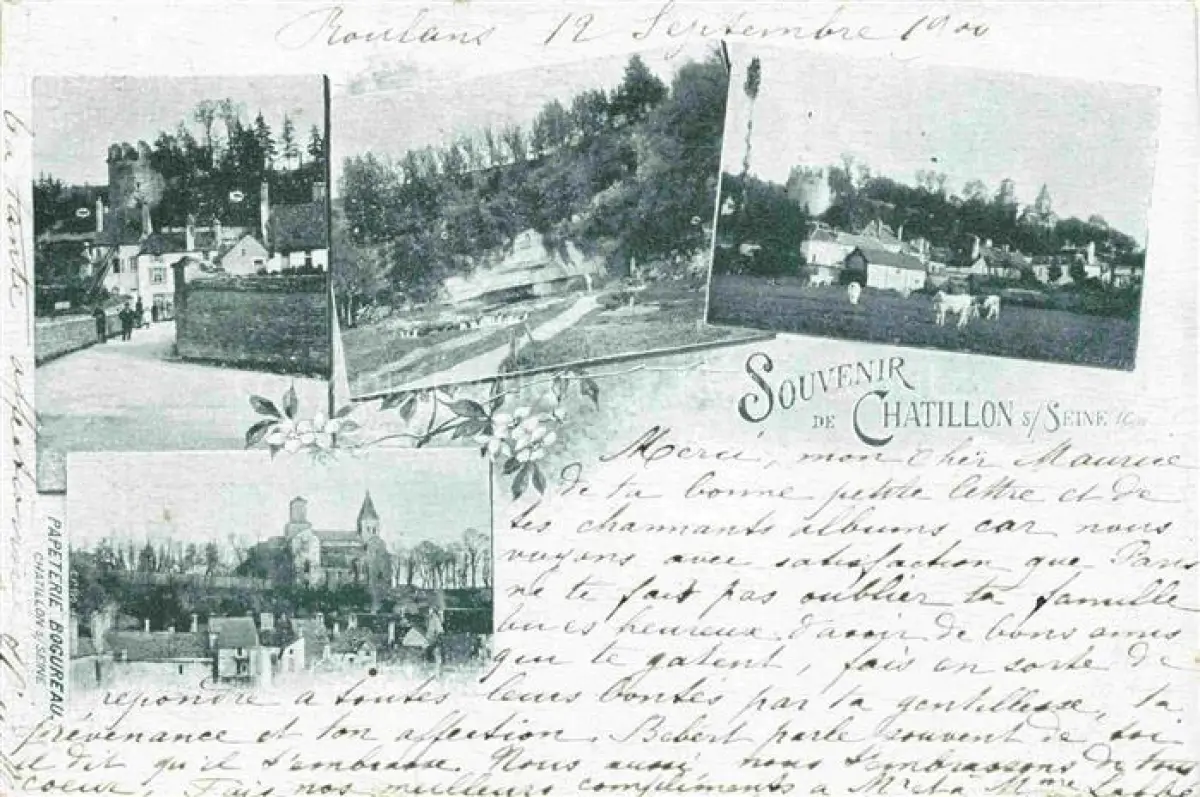 Roulans 12 Septembre 1900
SOUVENIR
DE CHATILLON S/SEINE
PAPETERIE BOGUREAU,
CHATILLON S/ SEINE
Merci, mon cher Maurice
de ta bonne petite lettre et de
tes charmants albums car nous
voyons avec satisfaction que Paris
ne te fait pas oublier ta famille
heureux d'avoir de bons amis
qui te gatent, fais en sorte de
répondre a toutes leurs bontés par ta gentillesse, ta
prévenance et ton affection. Bebert parle souvent de toi
il dit qu'il t'embrasse. Nous aussi nous t'embrassons de tout
coeur. Fais nos meilleurs compliments a Mr et a Mme
ta tante affectionnée